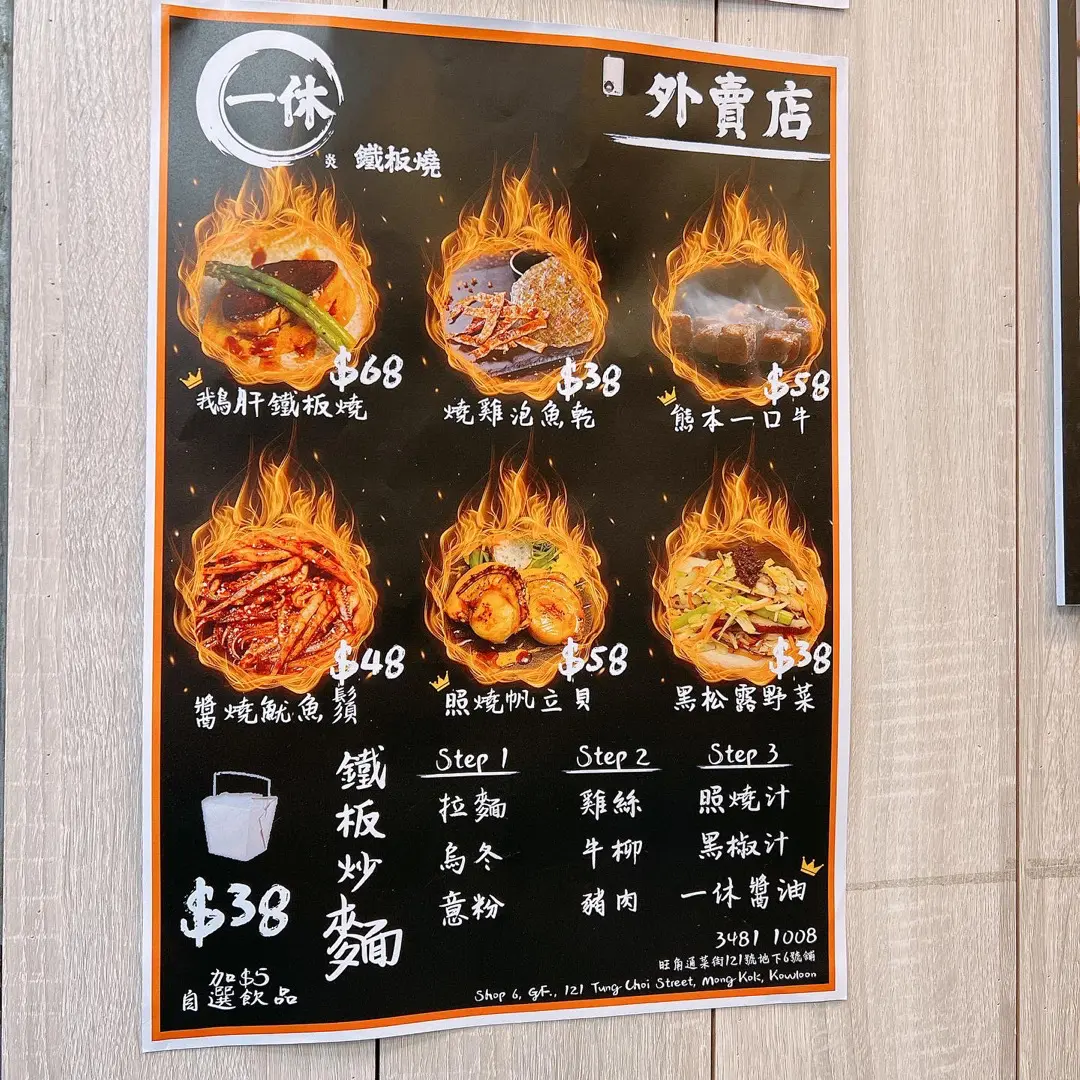 一休
炎 鐵板燒
外賣店
$68
鵝肝鐵板燒
$38
燒雞泡魚乾
$58
熊本一口牛
$48
醬燒魷魚鬚
$58
照燒帆立貝
$38
黑松露野菜
鐵板炒麵
$38
加$5
自選飲品
Step 1
拉麵
烏冬
意粉
Step 2
雞絲
牛柳
豬肉
Step 3
照燒汁
黑椒汁
一休醬油
3481 1008
旺角通菜街121號地下6號舖
Shop 6, G/F., 121 Tung Choi Street, Mong Kok, Kowloon